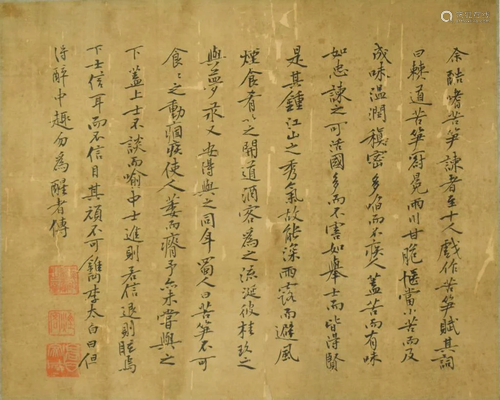 余酷嗜苦笋諫者至十人戲作苦笋賦其詞
曰道苦笋冠冕兩川甘脆愜當小苦而及
成味温潤稹密多啗而不疾人蓋苦而有味
如忠諫之可活國多而不害如舉士而皆得賢
是其鍾江山之秀氣故能深雨露而避風
煙食肴以之開道酒客為之流涎彼桂玫之
與夢永又安得與之同年蜀人曰苦笋不可
食〻之動痼疾使人萎而瘠予亦未嘗與之
下蓋上士不談而喻中士進則若信退則眩焉
下士信耳而不信目其頑不可鐫李太白曰但
得醉中趣勿為醒者傳